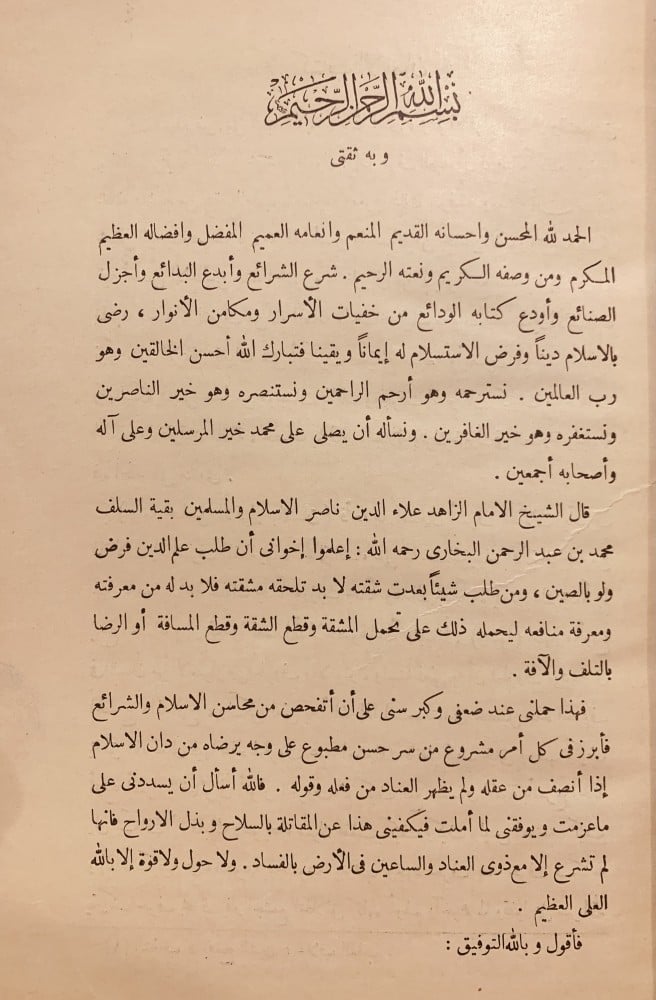 بسم الله الرحمن الرحيم
وبه ثقتى
الحمد لله المحسن واحسانه القديم المنعم وانعامه العميم المفضل وافضاله العظيم
المكرم ومن وصفه الكريم ونعته الرحيم . شرع الشرائع وأبدع البدائع وأجزل
الصنائع وأودع كتابه الودائع من خفيات الأسرار ومكامن الأنوار ، رضى
بالاسلام ديناً وفرض الاستسلام له إيماناً ويقينا فتبارك الله أحسن الخالقين وهو
رب العالمين . نسترحمه وهو أرحم الراحمين ونستنصره وهو خير الناصرين
ونستغفره وهو خير الغافرين . ونسأله أن يصلى على محمد خير المرسلين وعلى آله
وأصحابه أجمعين .
قال الشيخ الامام الزاهد علاء الدين ناصر الاسلام والمسلمين بقية السلف
محمد بن عبد الرحمن البخارى رحمه الله : إعلموا إخوانى أن طلب علم الدين فرض
ولو بالصين ، ومن طلب شيئاً بعدت شقته لا بد تلحقه مشقته فلا بد له من معرفته
ومعرفة منافعه ليحمله ذلك على تحمل المشقة وقطع الشقة وقطع المسافة أو الرضا
بالتلف والآفة .
فهذا حملنى عند ضعفى وكبر سنى على أن أتفحص من محاسن الاسلام والشرائع
فأبرز فى كل أمر مشروع من سر حسن مطبوع على وجه يرضاه من دان الاسلام
إذا أنصف من عقله ولم يظهر العناد من فعله وقوله . فالله أسأل أن يسددنى على
ما عزمت ويوفقنى لما أملت فيكفينى هذا عن المقاتلة بالسلاح وبذل الارواح فانها
لم تشرع إلا مع ذوى العناد والساعين فى الأرض بالفساد . ولا حول ولا قوة إلا بالله
العلى العظيم .
فأقول وبالله التوفيق :